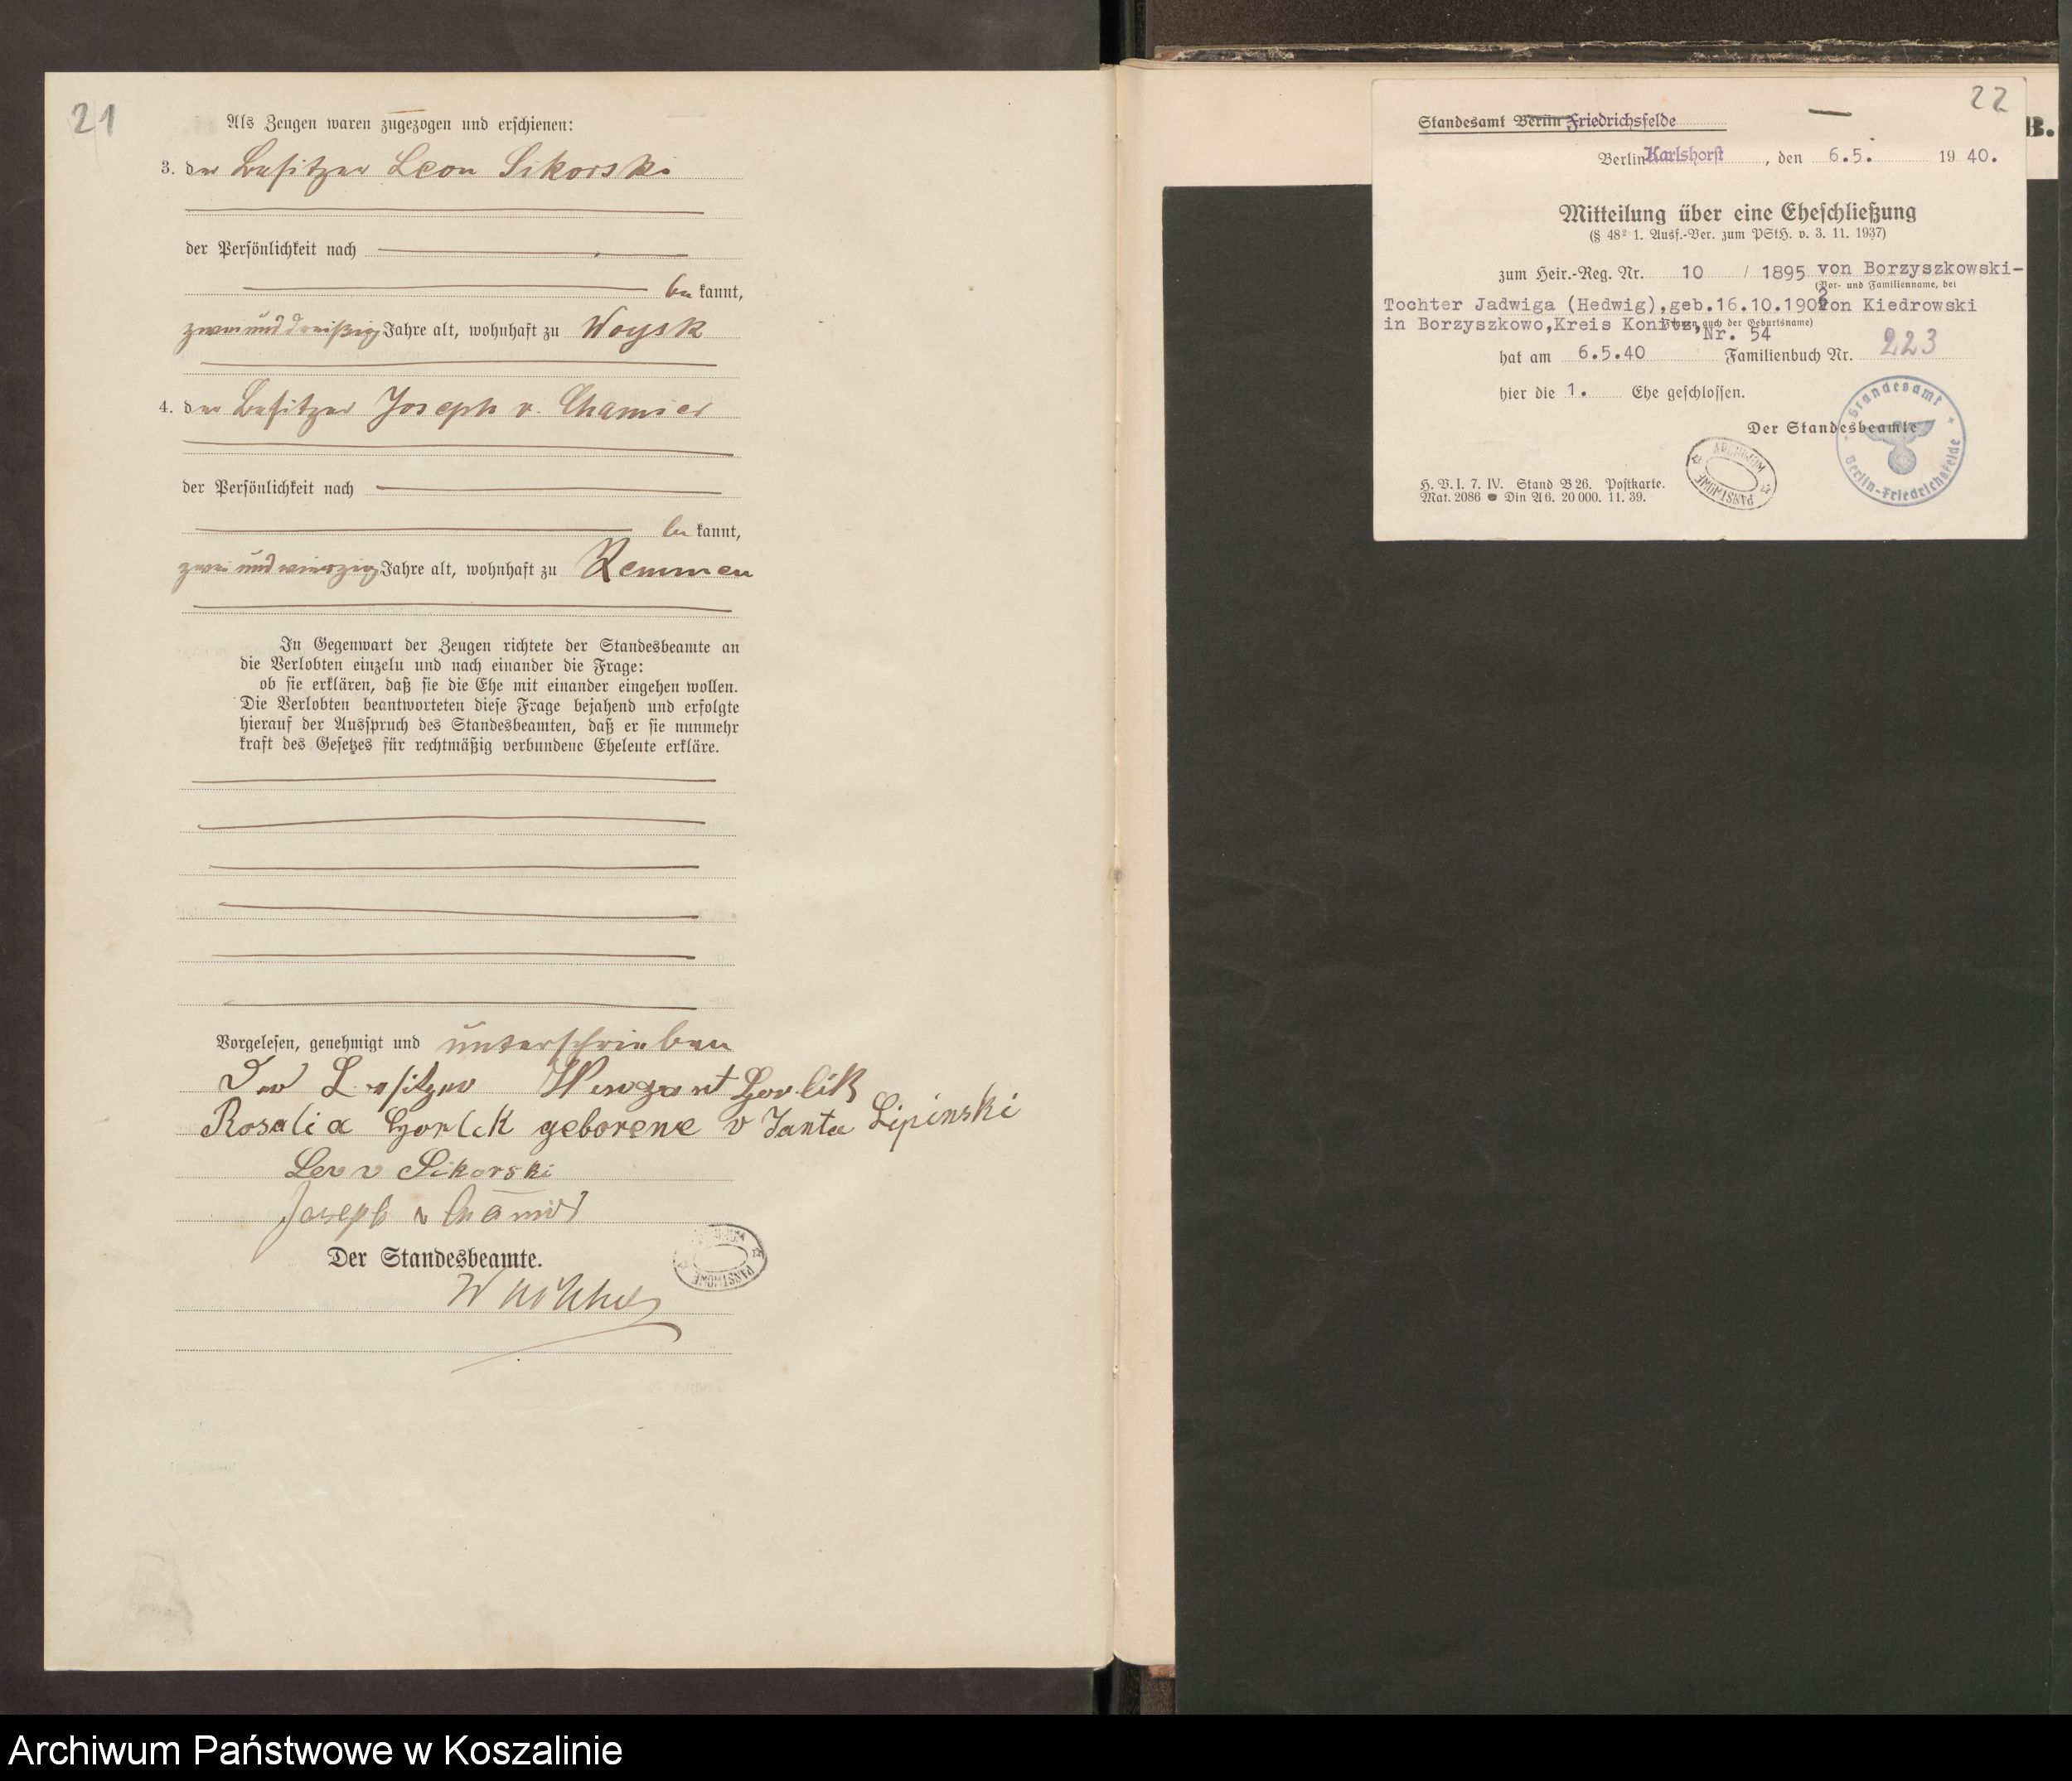 21
Als Zeugen waren zugezogen und erschienen:
3. der Besitzer Leon Sikorski
der Persönlichkeit nach
be kannt,
zwei und dreißig Jahre alt, wohnhaft zu Woysk
4. der Besitzer Joseph v. Chamier
der Persönlichkeit nach
be kannt,
zwei und vierzig Jahre alt, wohnhaft zu Remmen
In Gegenwart der Zeugen richtete der Standesbeamte an
die Verlobten einzeln und nach einander die Frage:
ob sie erklären, daß sie die Ehe mit einander eingehen wollen.
Die Verlobten beantworteten diese Frage bejahend und erfolgte
hierauf der Ausspruch des Standesbeamten, daß er sie nunmehr
kraft des Gesetzes für rechtmäßig verbundene Eheleute erkläre.
Vorgelesen, genehmigt und unterschrieben
Der Besitzer Gorlik
Rosalia Gorlik geborene v Janta Lipinski
Leo v Sikorski
Joseph v Chamier
Der Standesbeamte.
ARCHIWUM PAŃSTWOWE
22
B.
Standesamt Berlin Friedrichsfelde
Berlin Karlshorst, den 6.5. 19 40.
Mitteilung über eine Eheschließung
(§ 48² 1. Ausf.-Ver. zum PStG. v. 3. 11. 1937)
zum Heir.-Reg. Nr. 10 / 1895 von Borzyszkowski-
(Vor- und Familienname, bei
Tochter Jadwiga (Hedwig),geb.16.10.1902 von Kiedrowski
Frauen auch der Geburtsname)
in Borzyszkowo,Kreis Konitz, Nr. 54
hat am 6.5.40 Familienbuch Nr. 223
hier die 1. Ehe geschlossen.
Der Standesbeamte
Standesamt Berlin-Friedrichsfelde
ARCHIWUM PAŃSTWOWE
H. V. I. 7. IV. Stand B 26. Postkarte.
Mat. 2086 ● Din A 6. 20 000. 11. 39.
Archiwum Państwowe w Koszalinie